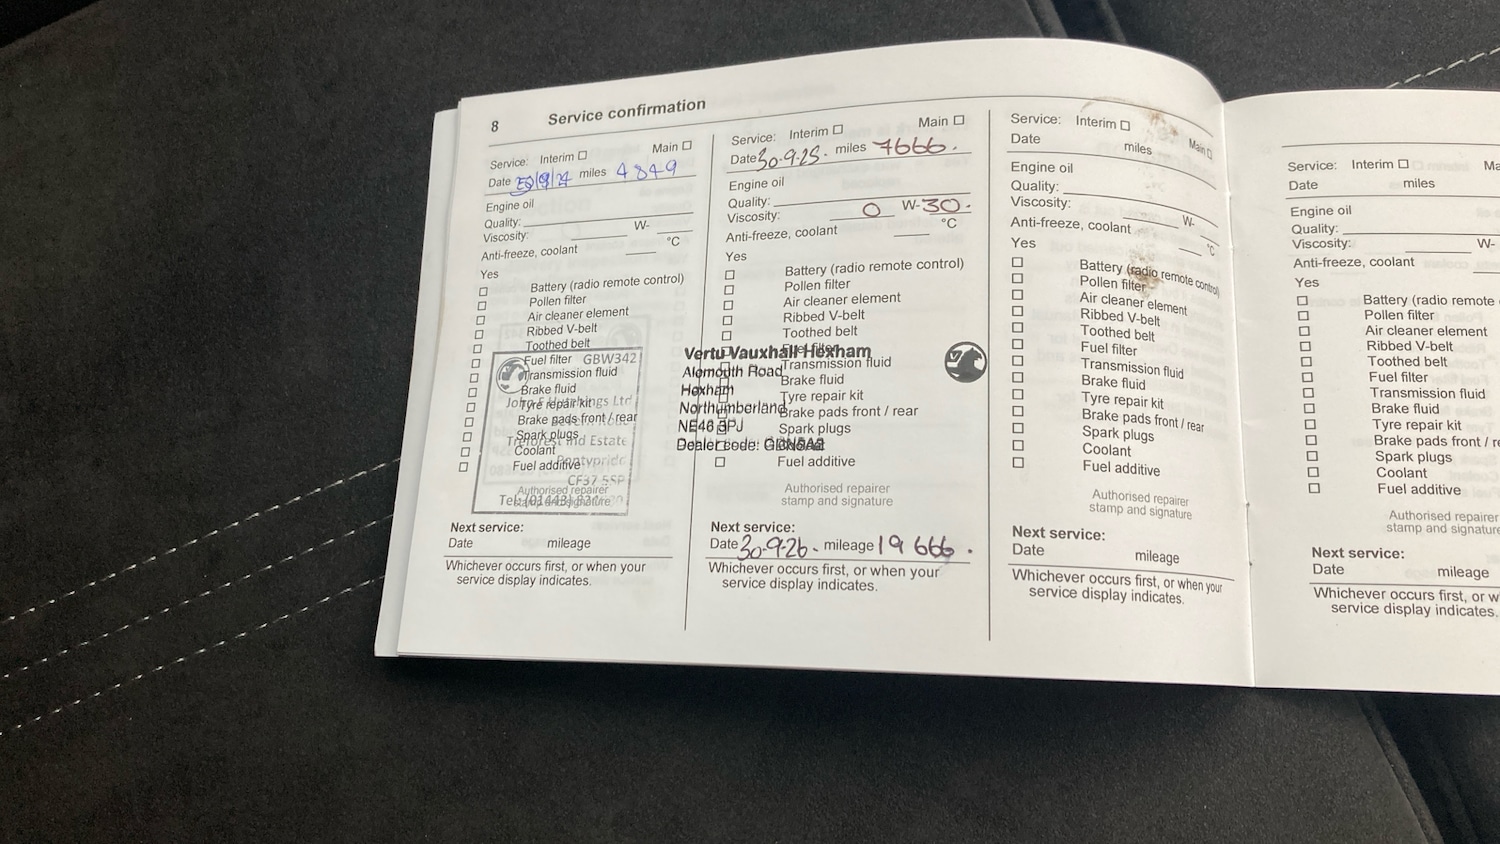 8 Service confirmation
Service: Interim ☐ Main ☐
Date miles 4849
Engine oil
Quality:
Viscosity: W-
Anti-freeze, coolant °C
Yes
☐ Battery (radio remote control)
☐ Pollen filter
☐ Air cleaner element
☐ Ribbed V-belt
☐ Toothed belt
☐ Fuel filter
☐ Transmission fluid
☐ Brake fluid
☐ Tyre repair kit
☐ Brake pads front / rear
☐ Spark plugs
☐ Coolant
☐ Fuel additive
GBW342
Ltd
Treforest Ind Estate
Pontypridd
CF37 5SP
Tel: (01443)
Authorised repairer
stamp and signature
Next service:
Date mileage
Whichever occurs first, or when your
service display indicates.
Service: Interim ☐ Main ☐
Date 30-9-25. miles 7666.
Engine oil
Quality:
Viscosity: 0 W-30.
Anti-freeze, coolant °C
Yes
☐ Battery (radio remote control)
☐ Pollen filter
☐ Air cleaner element
☐ Ribbed V-belt
☐ Toothed belt
☐ Fuel filter
☐ Transmission fluid
☐ Brake fluid
☐ Tyre repair kit
☐ Brake pads front / rear
☐ Spark plugs
☐ Coolant
☐ Fuel additive
Vertu Vauxhall Hexham
Alemouth Road
Hexham
Northumberland
NE46 3PJ
Dealer code:
Authorised repairer
stamp and signature
Next service:
Date 30-9-26. mileage 19 666.
Whichever occurs first, or when your
service display indicates.
Service: Interim ☐ Main ☐
Date miles
Engine oil
Quality:
Viscosity: W-
Anti-freeze, coolant °C
Yes
☐ Battery (radio remote control)
☐ Pollen filter
☐ Air cleaner element
☐ Ribbed V-belt
☐ Toothed belt
☐ Fuel filter
☐ Transmission fluid
☐ Brake fluid
☐ Tyre repair kit
☐ Brake pads front / rear
☐ Spark plugs
☐ Coolant
☐ Fuel additive
Authorised repairer
stamp and signature
Next service:
Date mileage
Whichever occurs first, or when your
service display indicates.
Service: Interim ☐ Ma
Date miles
Engine oil
Quality:
Viscosity: W-
Anti-freeze, coolant
Yes
☐ Battery (radio remote
☐ Pollen filter
☐ Air cleaner element
☐ Ribbed V-belt
☐ Toothed belt
☐ Fuel filter
☐ Transmission fluid
☐ Brake fluid
☐ Tyre repair kit
☐ Brake pads front / re
☐ Spark plugs
☐ Coolant
☐ Fuel additive
Authorised repairer
stamp and signature
Next service:
Date mileage
Whichever occurs first, or w
service display indicates.